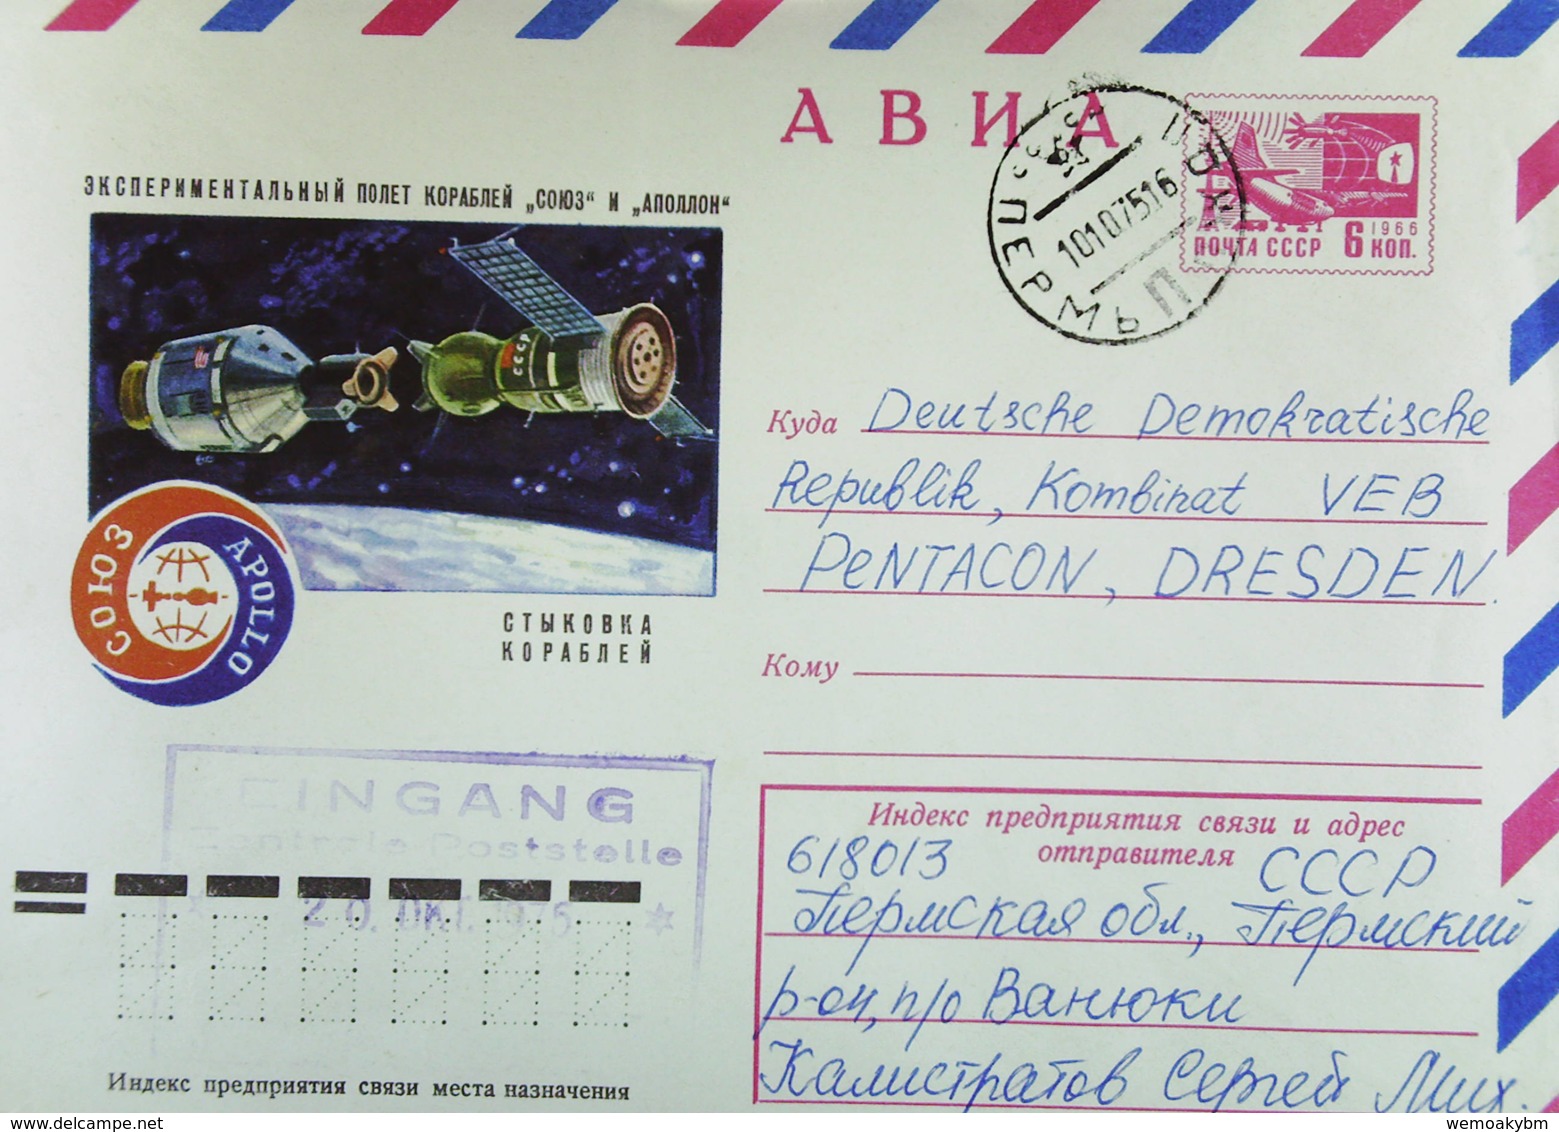 АВИА
ЭКСПЕРИМЕНТАЛЬНЫЙ ПОЛЕТ КОРАБЛЕЙ „СОЮЗ“ И „АПОЛЛОН“
СССР
СОЮЗ APOLLO
СТЫКОВКА
КОРАБЛЕЙ
1966
ПОЧТА СССР 6 КОП.
СССР ПЕРМЬ
10107516
Куда Deutsche Demokratische
Republik, Kombinat VEB
PeNTACON, DRESDEN.
Кому
EINGANG
Zentrale Poststelle
20. OKT. 1975
Индекс предприятия связи и адрес
отправителя
618013 СССР
Пермская обл., Пермский
р-он, п/о Ванюки
Калистратов Сергей Мих.
Индекс предприятия связи места назначения
www.delcampe.net
wemoakybm